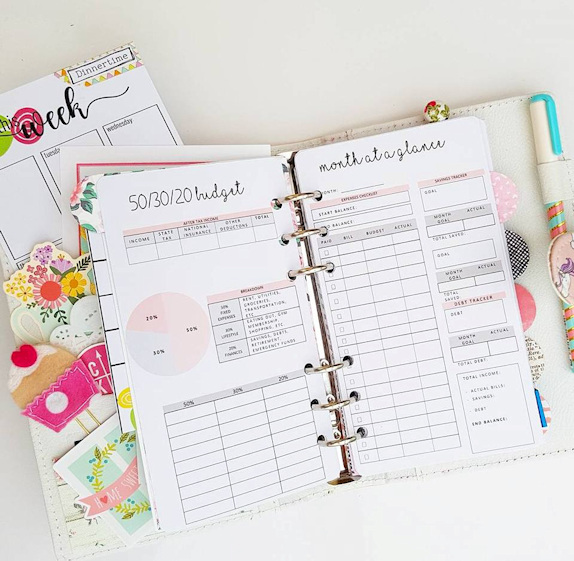 Dinnertime
week
wednesday
50/30/20 budget
AFTER TAX INCOME
INCOME STATE TAX NATIONAL INSURANCE OTHER DEDUCTIONS TOTAL
20%
50%
30%
BREAKDOWN
50% FIXED EXPENSES
RENT, UTILITIES, GROCERIES, TRANSPORTATION, ETC.
30% LIFESTYLE
EATING OUT, GYM MEMBERSHIP, SHOPPING, ETC.
20% FINANCES
SAVINGS, DEBTS, RETIREMENT, EMERGENCY FUNDS
50% 30% 20%
month at a glance
MONTH:
EXPENSES CHECKLIST
START BALANCE:
END BALANCE:
PAID BILL BUDGET ACTUAL
SAVINGS TRACKER
GOAL:
MONTH GOAL ACTUAL
TOTAL SAVED:
GOAL:
MONTH GOAL ACTUAL
TOTAL SAVED
DEBT TRACKER
DEBT:
MONTH GOAL ACTUAL
TOTAL DEBT:
TOTAL INCOME:
ACTUAL BILLS:
SAVINGS:
DEBT:
END BALANCE: